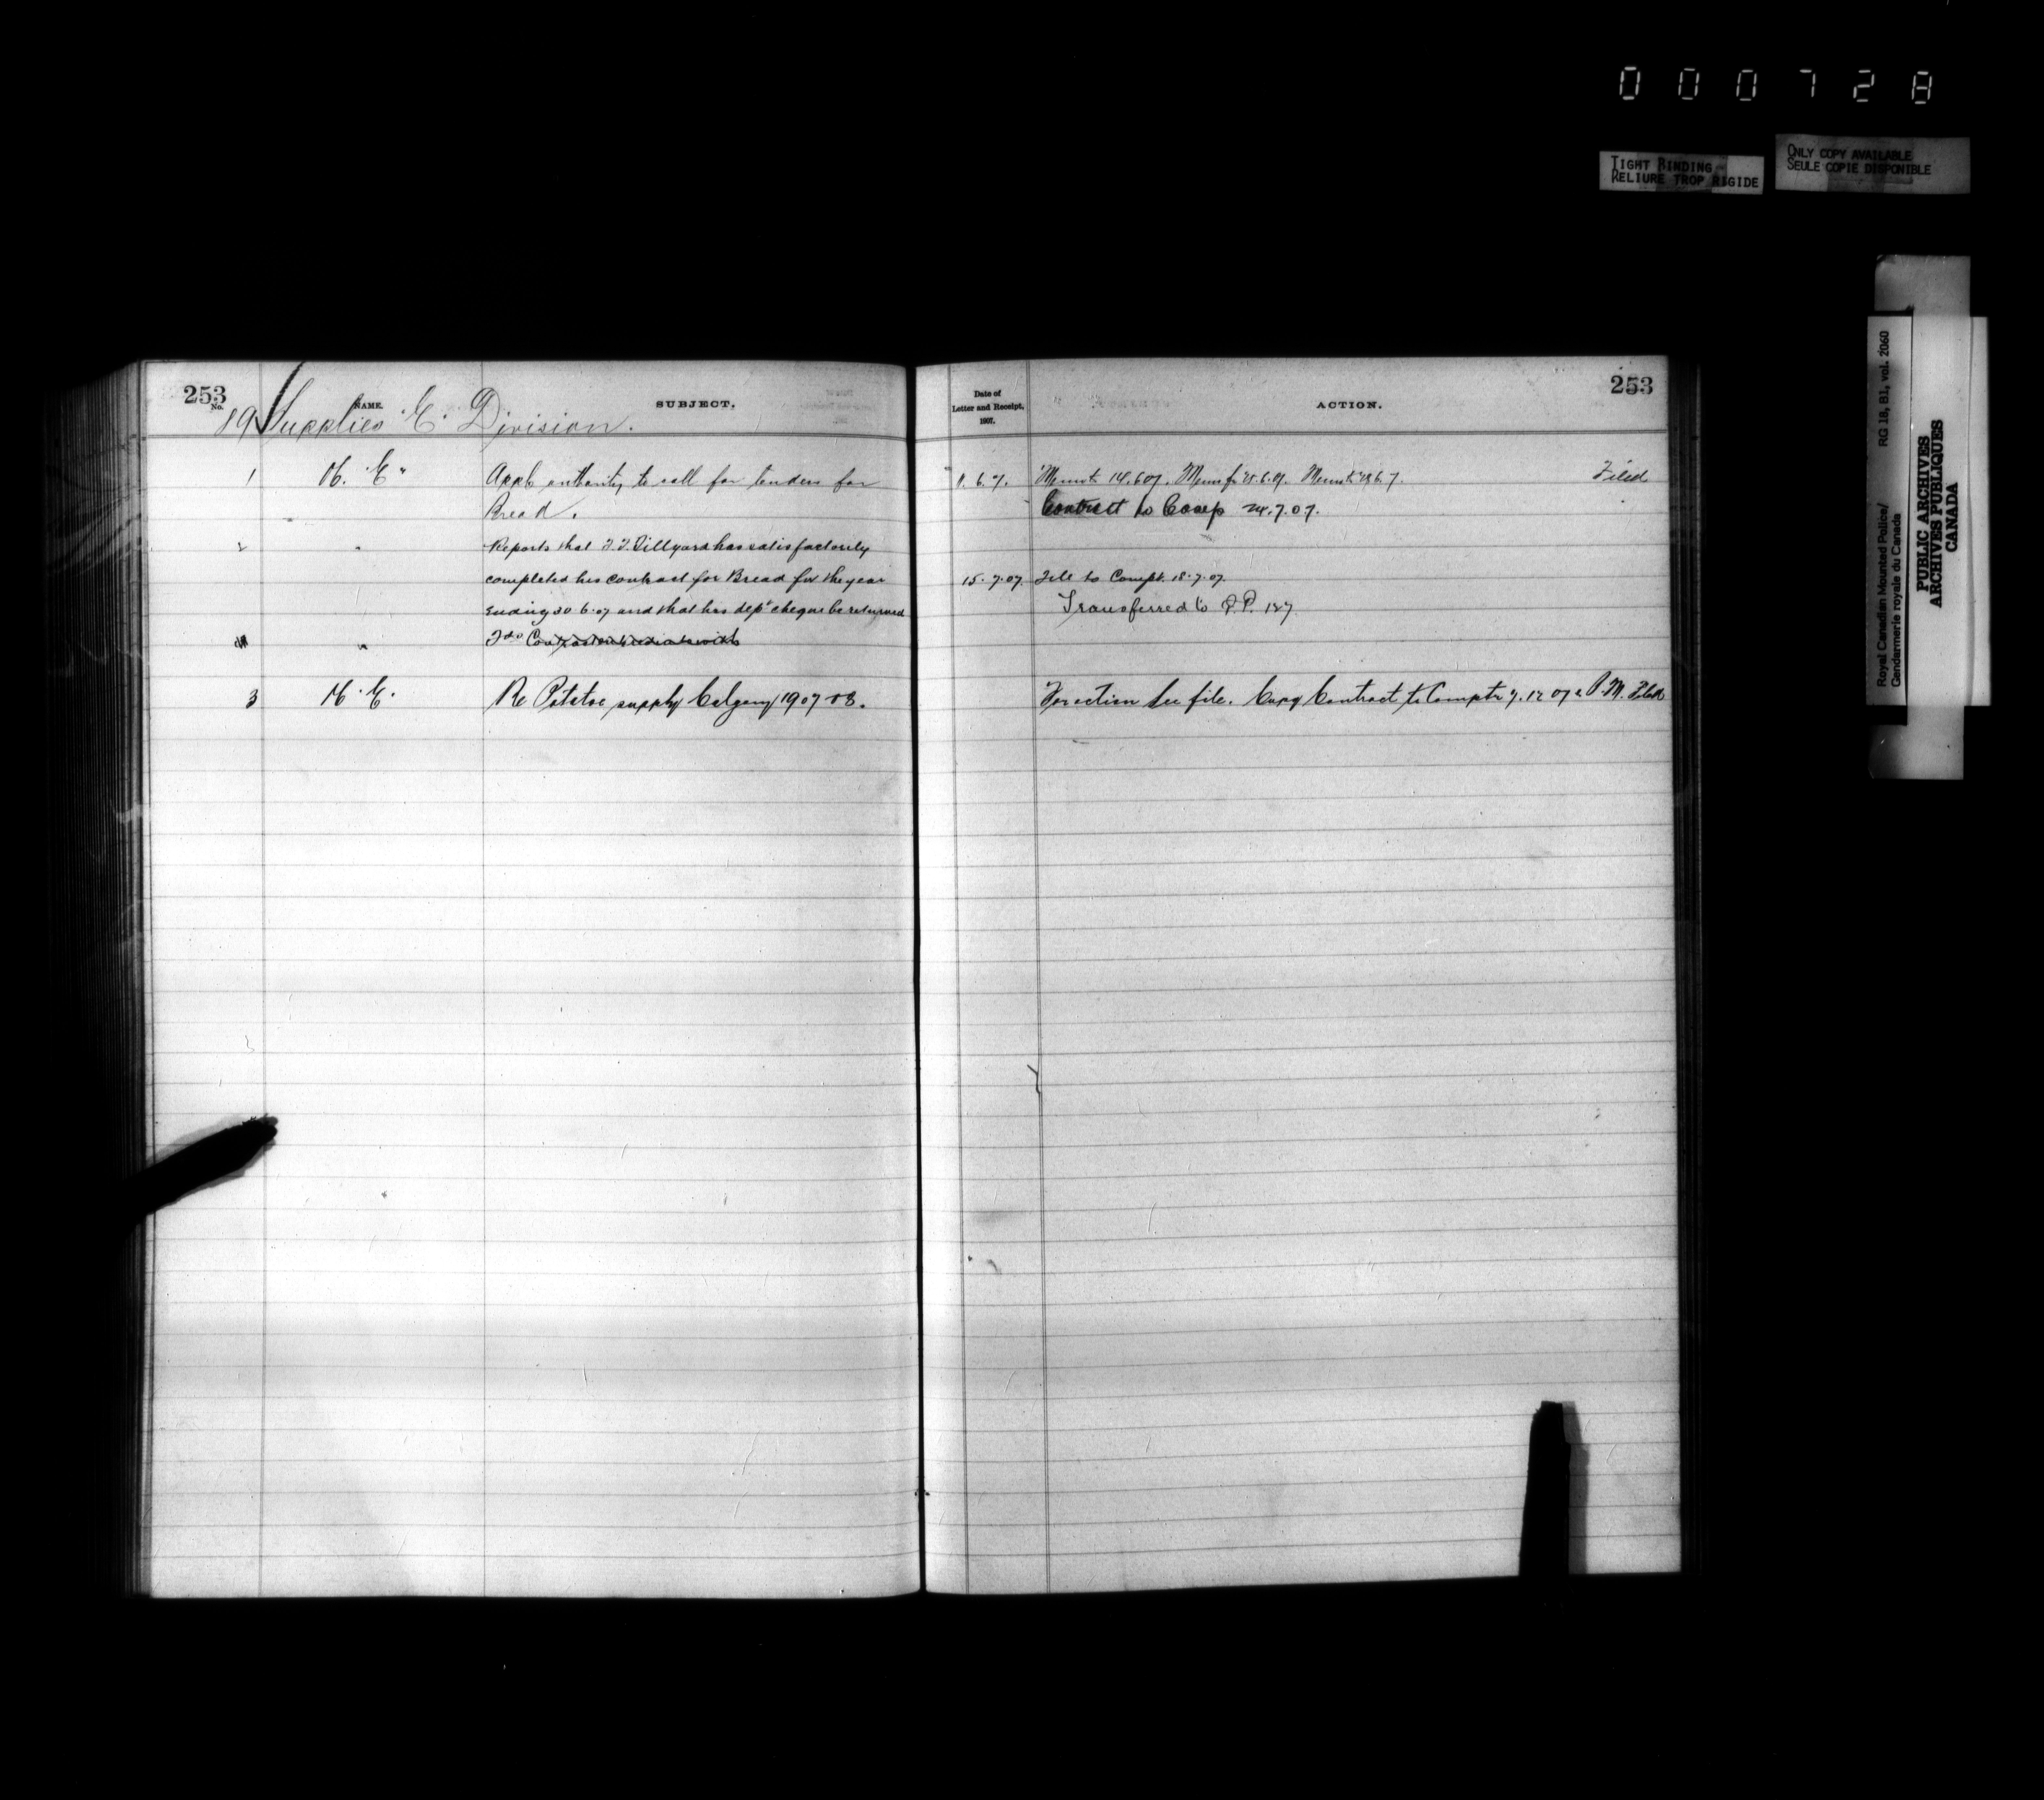 000728
TIGHT BINDING
RELIURE TROP RIGIDE
ONLY COPY AVAILABLE
SEULE COPIE DISPONIBLE
Royal Canadian Mounted Police/
Gendarmerie royale du Canada
RG 18, B1, vol. 2060
PUBLIC ARCHIVES
ARCHIVES PUBLIQUES
CANADA
253
No.
NAME.
SUBJECT.
89 Supplies "E" Division.
1 "E" Appl. authority to call for tenders for
Bread.
2 " Reports that Tillyard has satisfactorily
completed his contract for Bread for the year
ending 30.6.07 and that his dep. cheque be returned
"
3 "E". Re Potatoe supply Calgary 1907-08.
Date of
Letter and Receipt,
1907.
ACTION.
253
11.6.7. Memo to 14.6.07. Memo fr 25.6.07. Memo to 28.6.7. Filed.
Contract to Comp 24.7.07.
15.7.07. File to Compt. 18.7.07.
Transferred to Q.P. 187
For action see file. Copy Contract to Comptr 7.12.07 & P.M. Filed